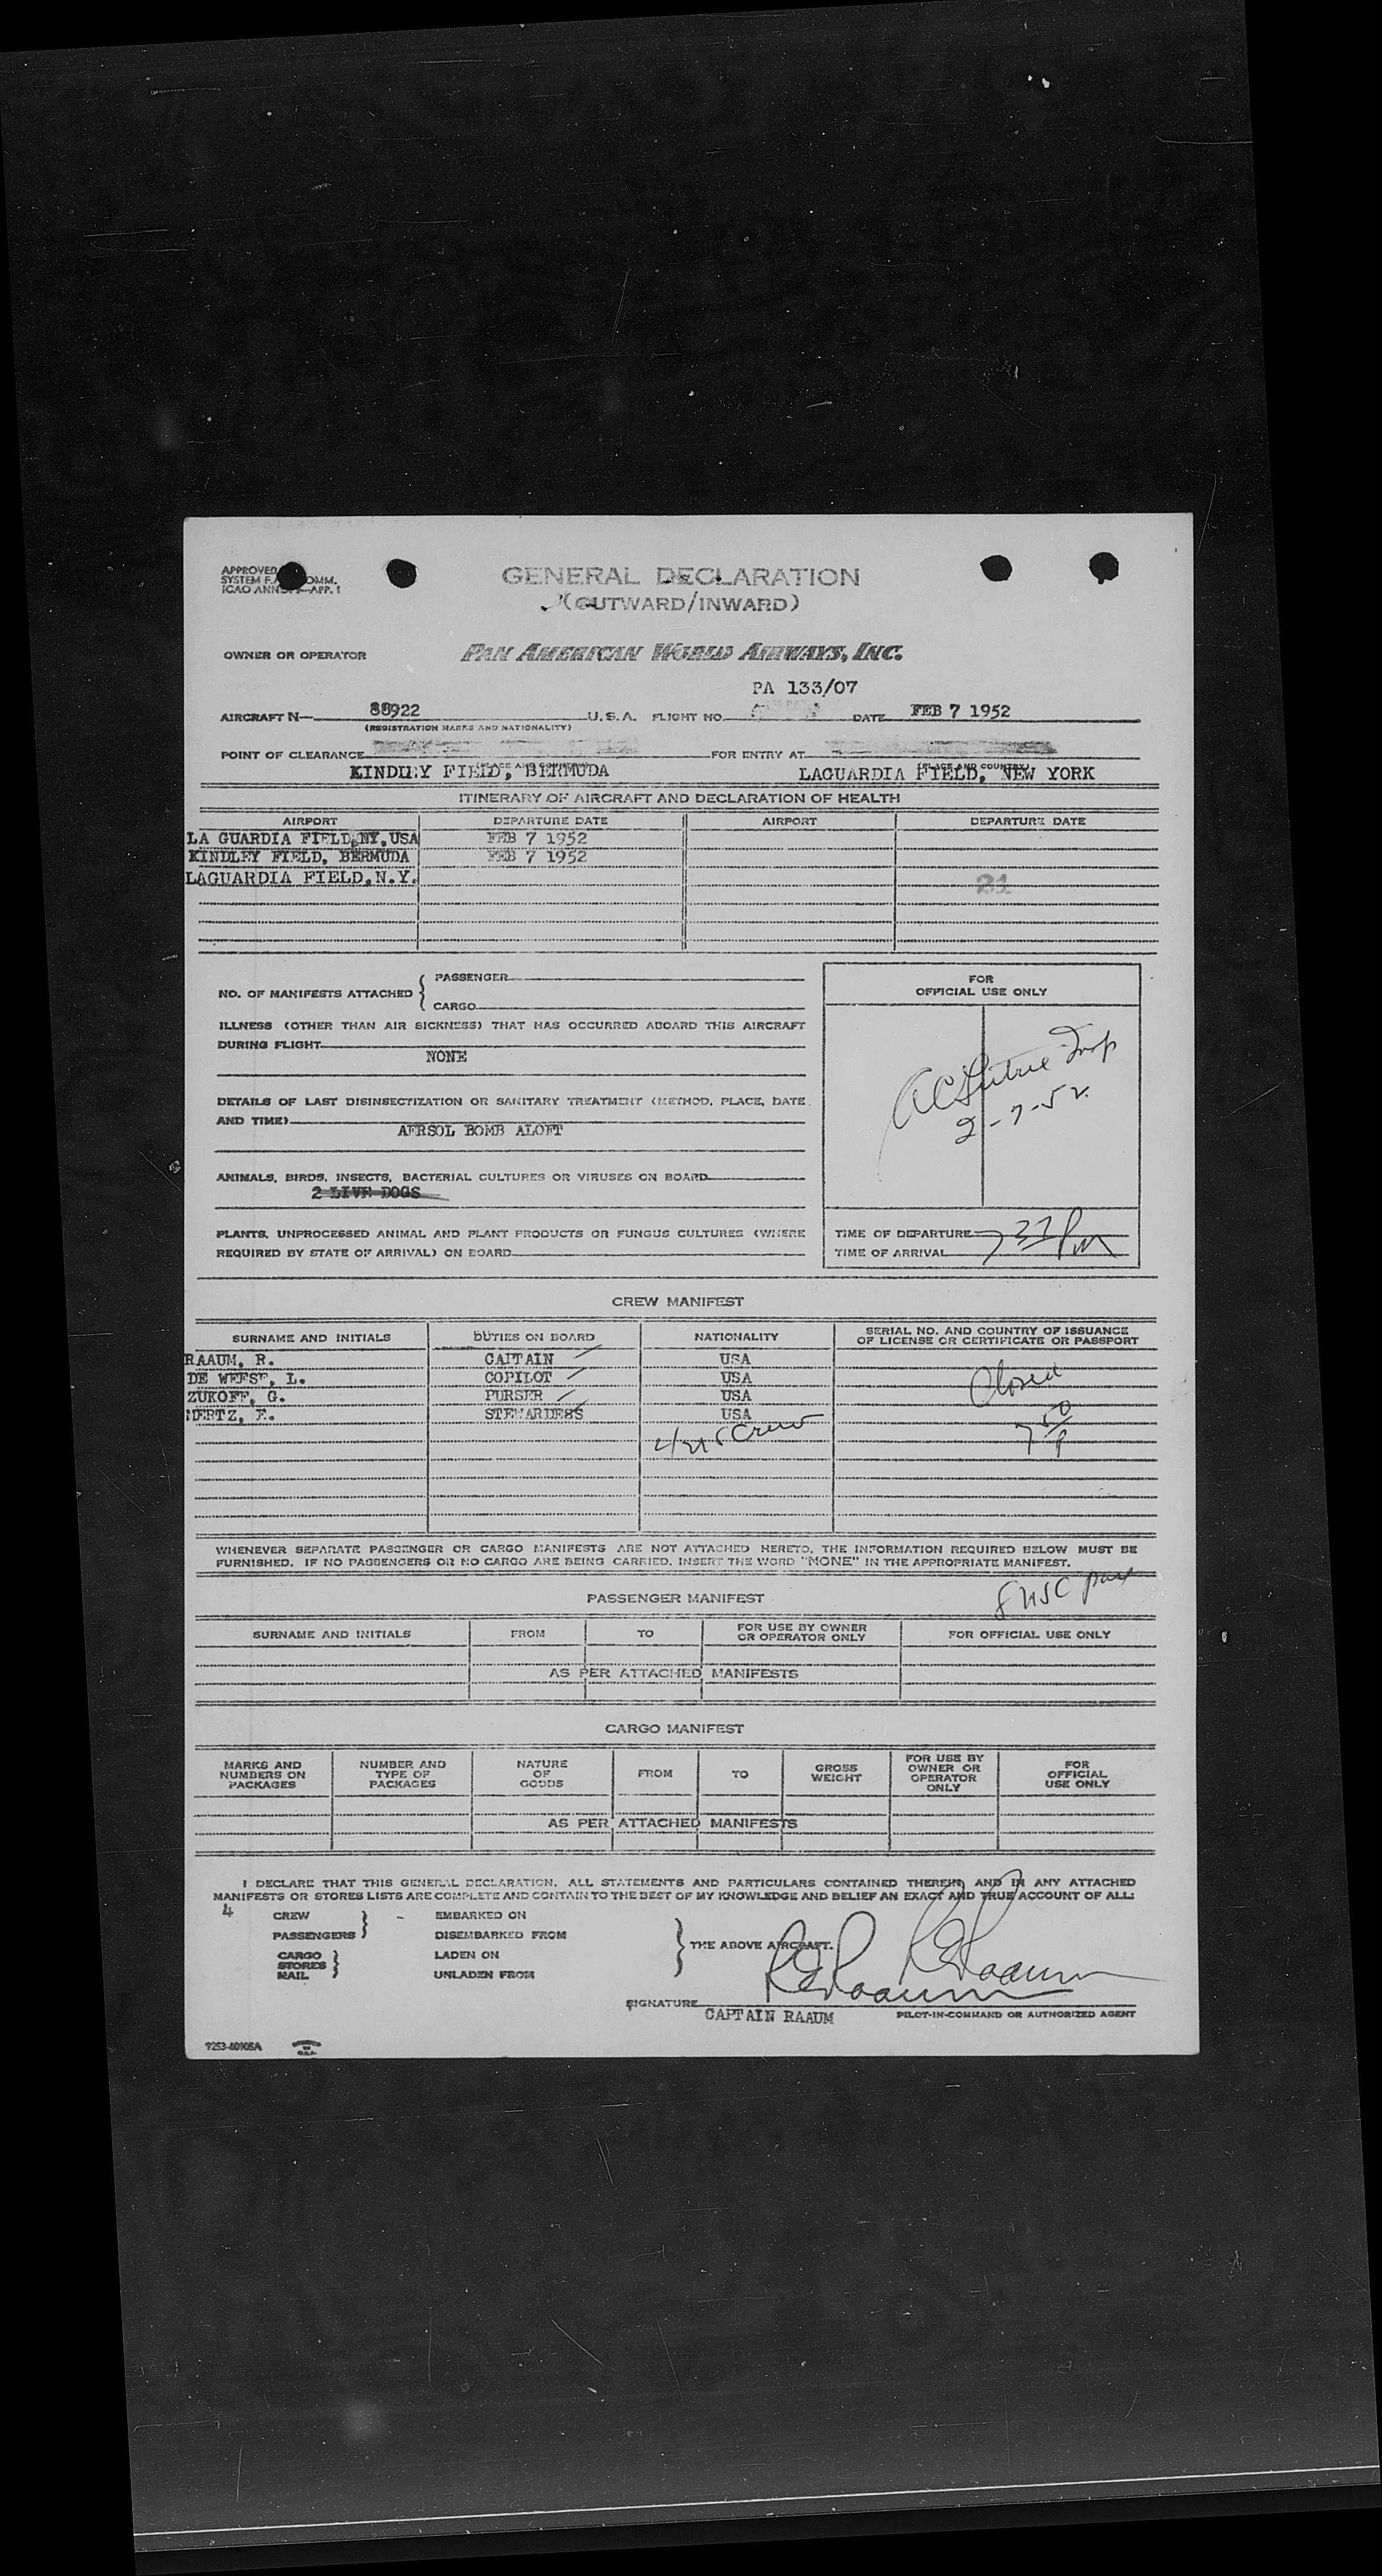 GENERAL DECLARATION
(OUTWARD/INWARD)
APPROVED
SYSTEM F. COMM.
ICAO ANN APP. 1
OWNER OR OPERATOR PAN AMERICAN WORLD AIRWAYS, INC.
PA 133/07
AIRCRAFT N— 88922 U.S.A. FLIGHT NO. DATE FEB 7 1952
(REGISTRATION MARKS AND NATIONALITY)
POINT OF CLEARANCE FOR ENTRY AT
(PLACE AND COUNTRY) (PLACE AND COUNTRY)
KINDLEY FIELD, BERMUDA LAGUARDIA FIELD, NEW YORK
ITINERARY OF AIRCRAFT AND DECLARATION OF HEALTH
AIRPORT DEPARTURE DATE AIRPORT DEPARTURE DATE
LA GUARDIA FIELD,NY,USA FEB 7 1952
KINDLEY FIELD, BERMUDA FEB 7 1952
LAGUARDIA FIELD,N.Y.
21
NO. OF MANIFESTS ATTACHED { PASSENGER
CARGO
ILLNESS (OTHER THAN AIR SICKNESS) THAT HAS OCCURRED ABOARD THIS AIRCRAFT
DURING FLIGHT
NONE
DETAILS OF LAST DISINSECTIZATION OR SANITARY TREATMENT (METHOD, PLACE, DATE
AND TIME)
AERSOL BOMB ALOFT
ANIMALS, BIRDS, INSECTS, BACTERIAL CULTURES OR VIRUSES ON BOARD
2 LIVE DOGS
PLANTS, UNPROCESSED ANIMAL AND PLANT PRODUCTS OR FUNGUS CULTURES (WHERE
REQUIRED BY STATE OF ARRIVAL) ON BOARD
FOR
OFFICIAL USE ONLY
2-7-52
TIME OF DEPARTURE
TIME OF ARRIVAL
7 37 Pm
CREW MANIFEST
SURNAME AND INITIALS DUTIES ON BOARD NATIONALITY SERIAL NO. AND COUNTRY OF ISSUANCE
OF LICENSE OR CERTIFICATE OR PASSPORT
RAAUM, R. CAPTAIN USA
DE WEESE, L. COPILOT USA
ZUKOFF, G. PURSER USA
MERTZ, E. STEWARDESS USA
Closed
7 50 P
4 us Crew
WHENEVER SEPARATE PASSENGER OR CARGO MANIFESTS ARE NOT ATTACHED HERETO, THE INFORMATION REQUIRED BELOW MUST BE
FURNISHED. IF NO PASSENGERS OR NO CARGO ARE BEING CARRIED, INSERT THE WORD "NONE" IN THE APPROPRIATE MANIFEST.
8 USC pax
PASSENGER MANIFEST
SURNAME AND INITIALS FROM TO FOR USE BY OWNER
OR OPERATOR ONLY FOR OFFICIAL USE ONLY
AS PER ATTACHED MANIFESTS
CARGO MANIFEST
MARKS AND
NUMBERS ON
PACKAGES
NUMBER AND
TYPE OF
PACKAGES
NATURE
OF
GOODS
FROM
TO
GROSS
WEIGHT
FOR USE BY
OWNER OR
OPERATOR
ONLY
FOR
OFFICIAL
USE ONLY
AS PER ATTACHED MANIFESTS
I DECLARE THAT THIS GENERAL DECLARATION, ALL STATEMENTS AND PARTICULARS CONTAINED THEREIN, AND IN ANY ATTACHED
MANIFESTS OR STORES LISTS ARE COMPLETE AND CONTAIN TO THE BEST OF MY KNOWLEDGE AND BELIEF AN EXACT AND TRUE ACCOUNT OF ALL:
4 CREW EMBARKED ON
PASSENGERS } - DISEMBARKED FROM
CARGO LADEN ON
STORES
MAIL } UNLADEN FROM
} THE ABOVE AIRCRAFT.
SIGNATURE
CAPTAIN RAAUM PILOT-IN-COMMAND OR AUTHORIZED AGENT
9253-40905A